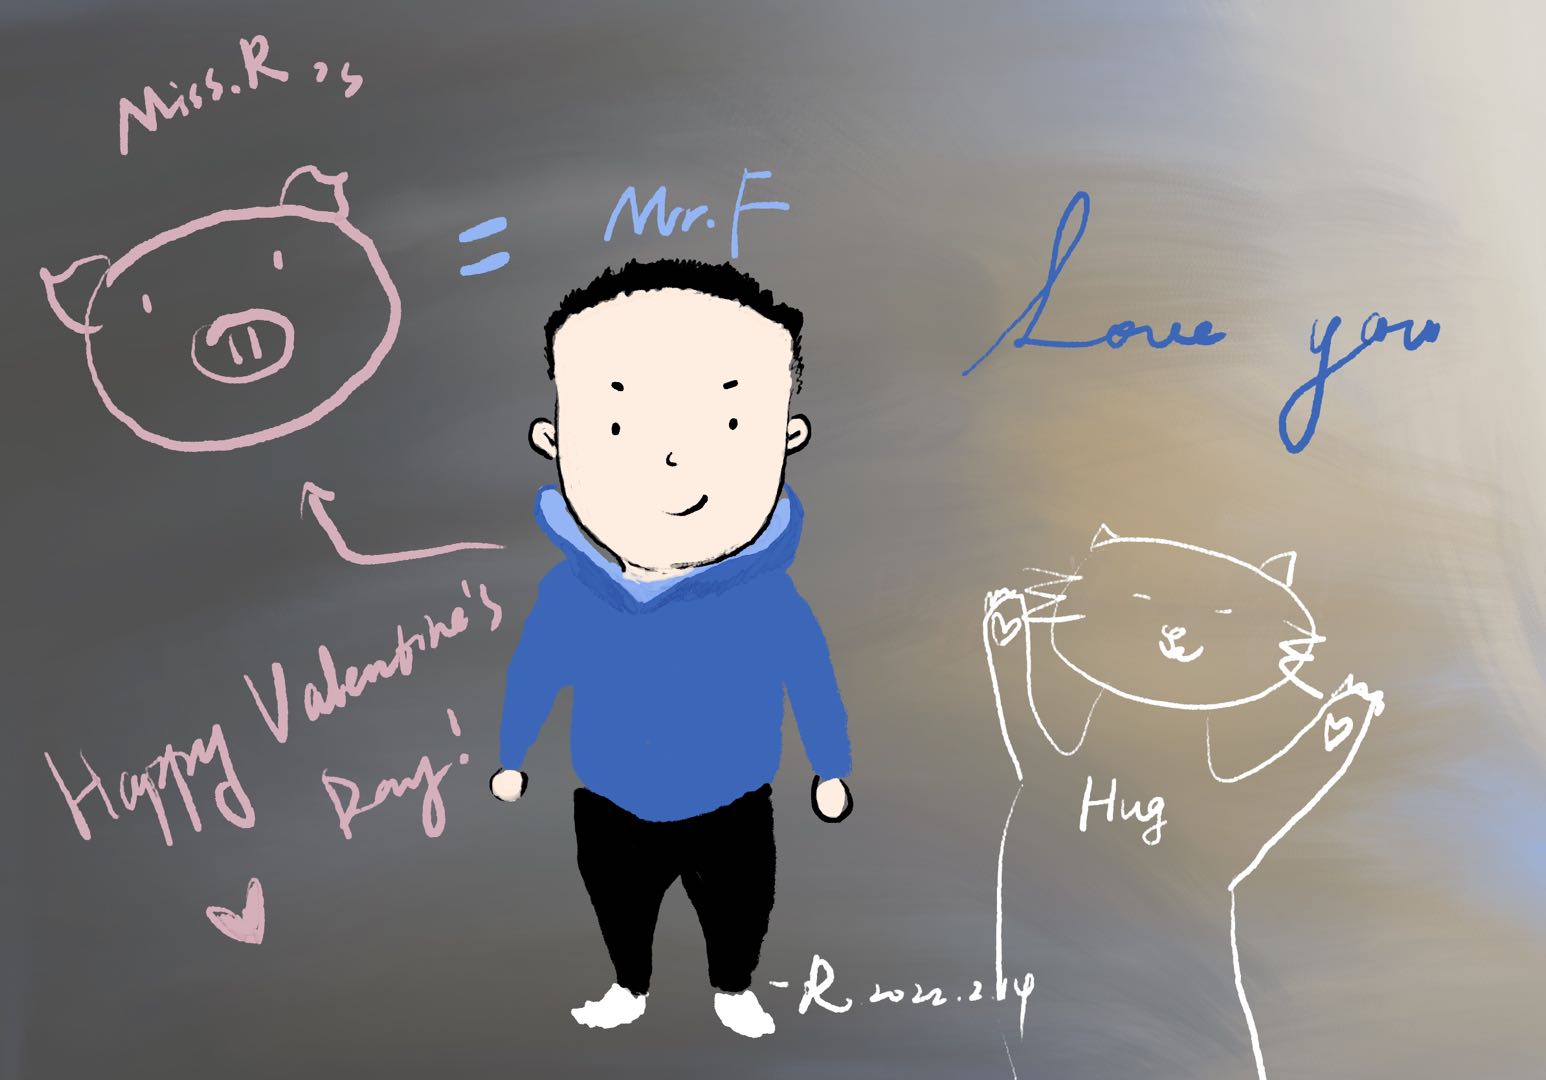 Miss.R's
=
Mr.F
Love you
Happy Valentine's
Day!
Hug
-R 2022.2.14